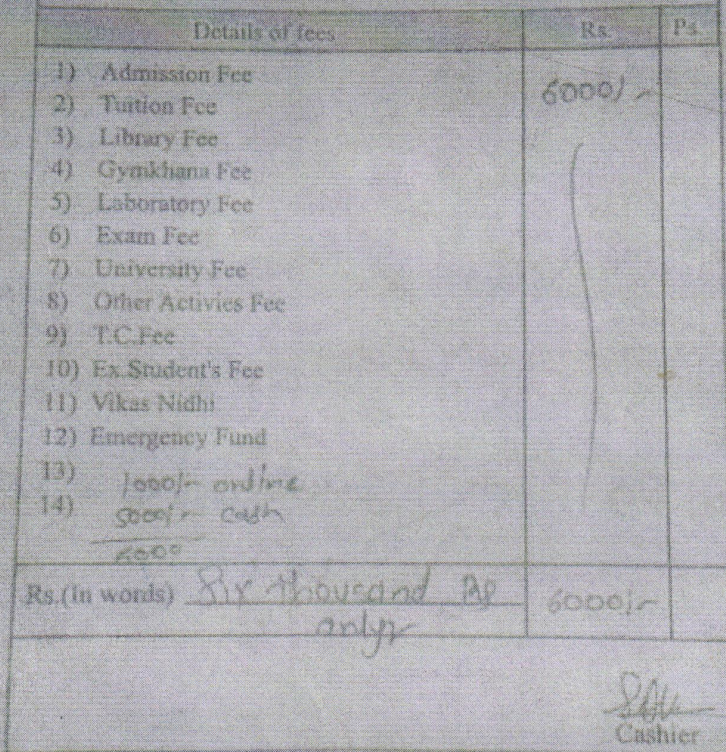 Details of fees Rs. Ps.
1) Admission Fee
6000/-
2) Tuition Fee
3) Library Fee
4) Gymkhana Fee
5) Laboratory Fee
6) Exam Fee
7) University Fee
8) Other Activies Fee
9) T.C.Fee
10) Ex.Student's Fee
11) Vikas Nidhi
12) Emergency Fund
13) 1000/- online
14) 5000/- cash
6000
Rs.(In words) Six thousand Rs 6000/-
only
Cashier